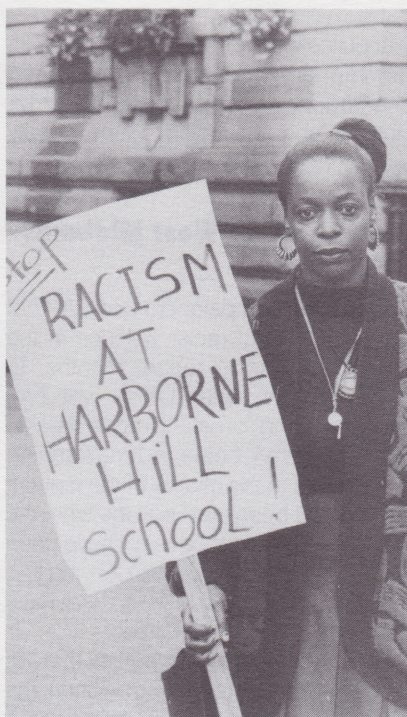 Stop
RACISM
AT
HARBORNE
HiLL
SchooL!